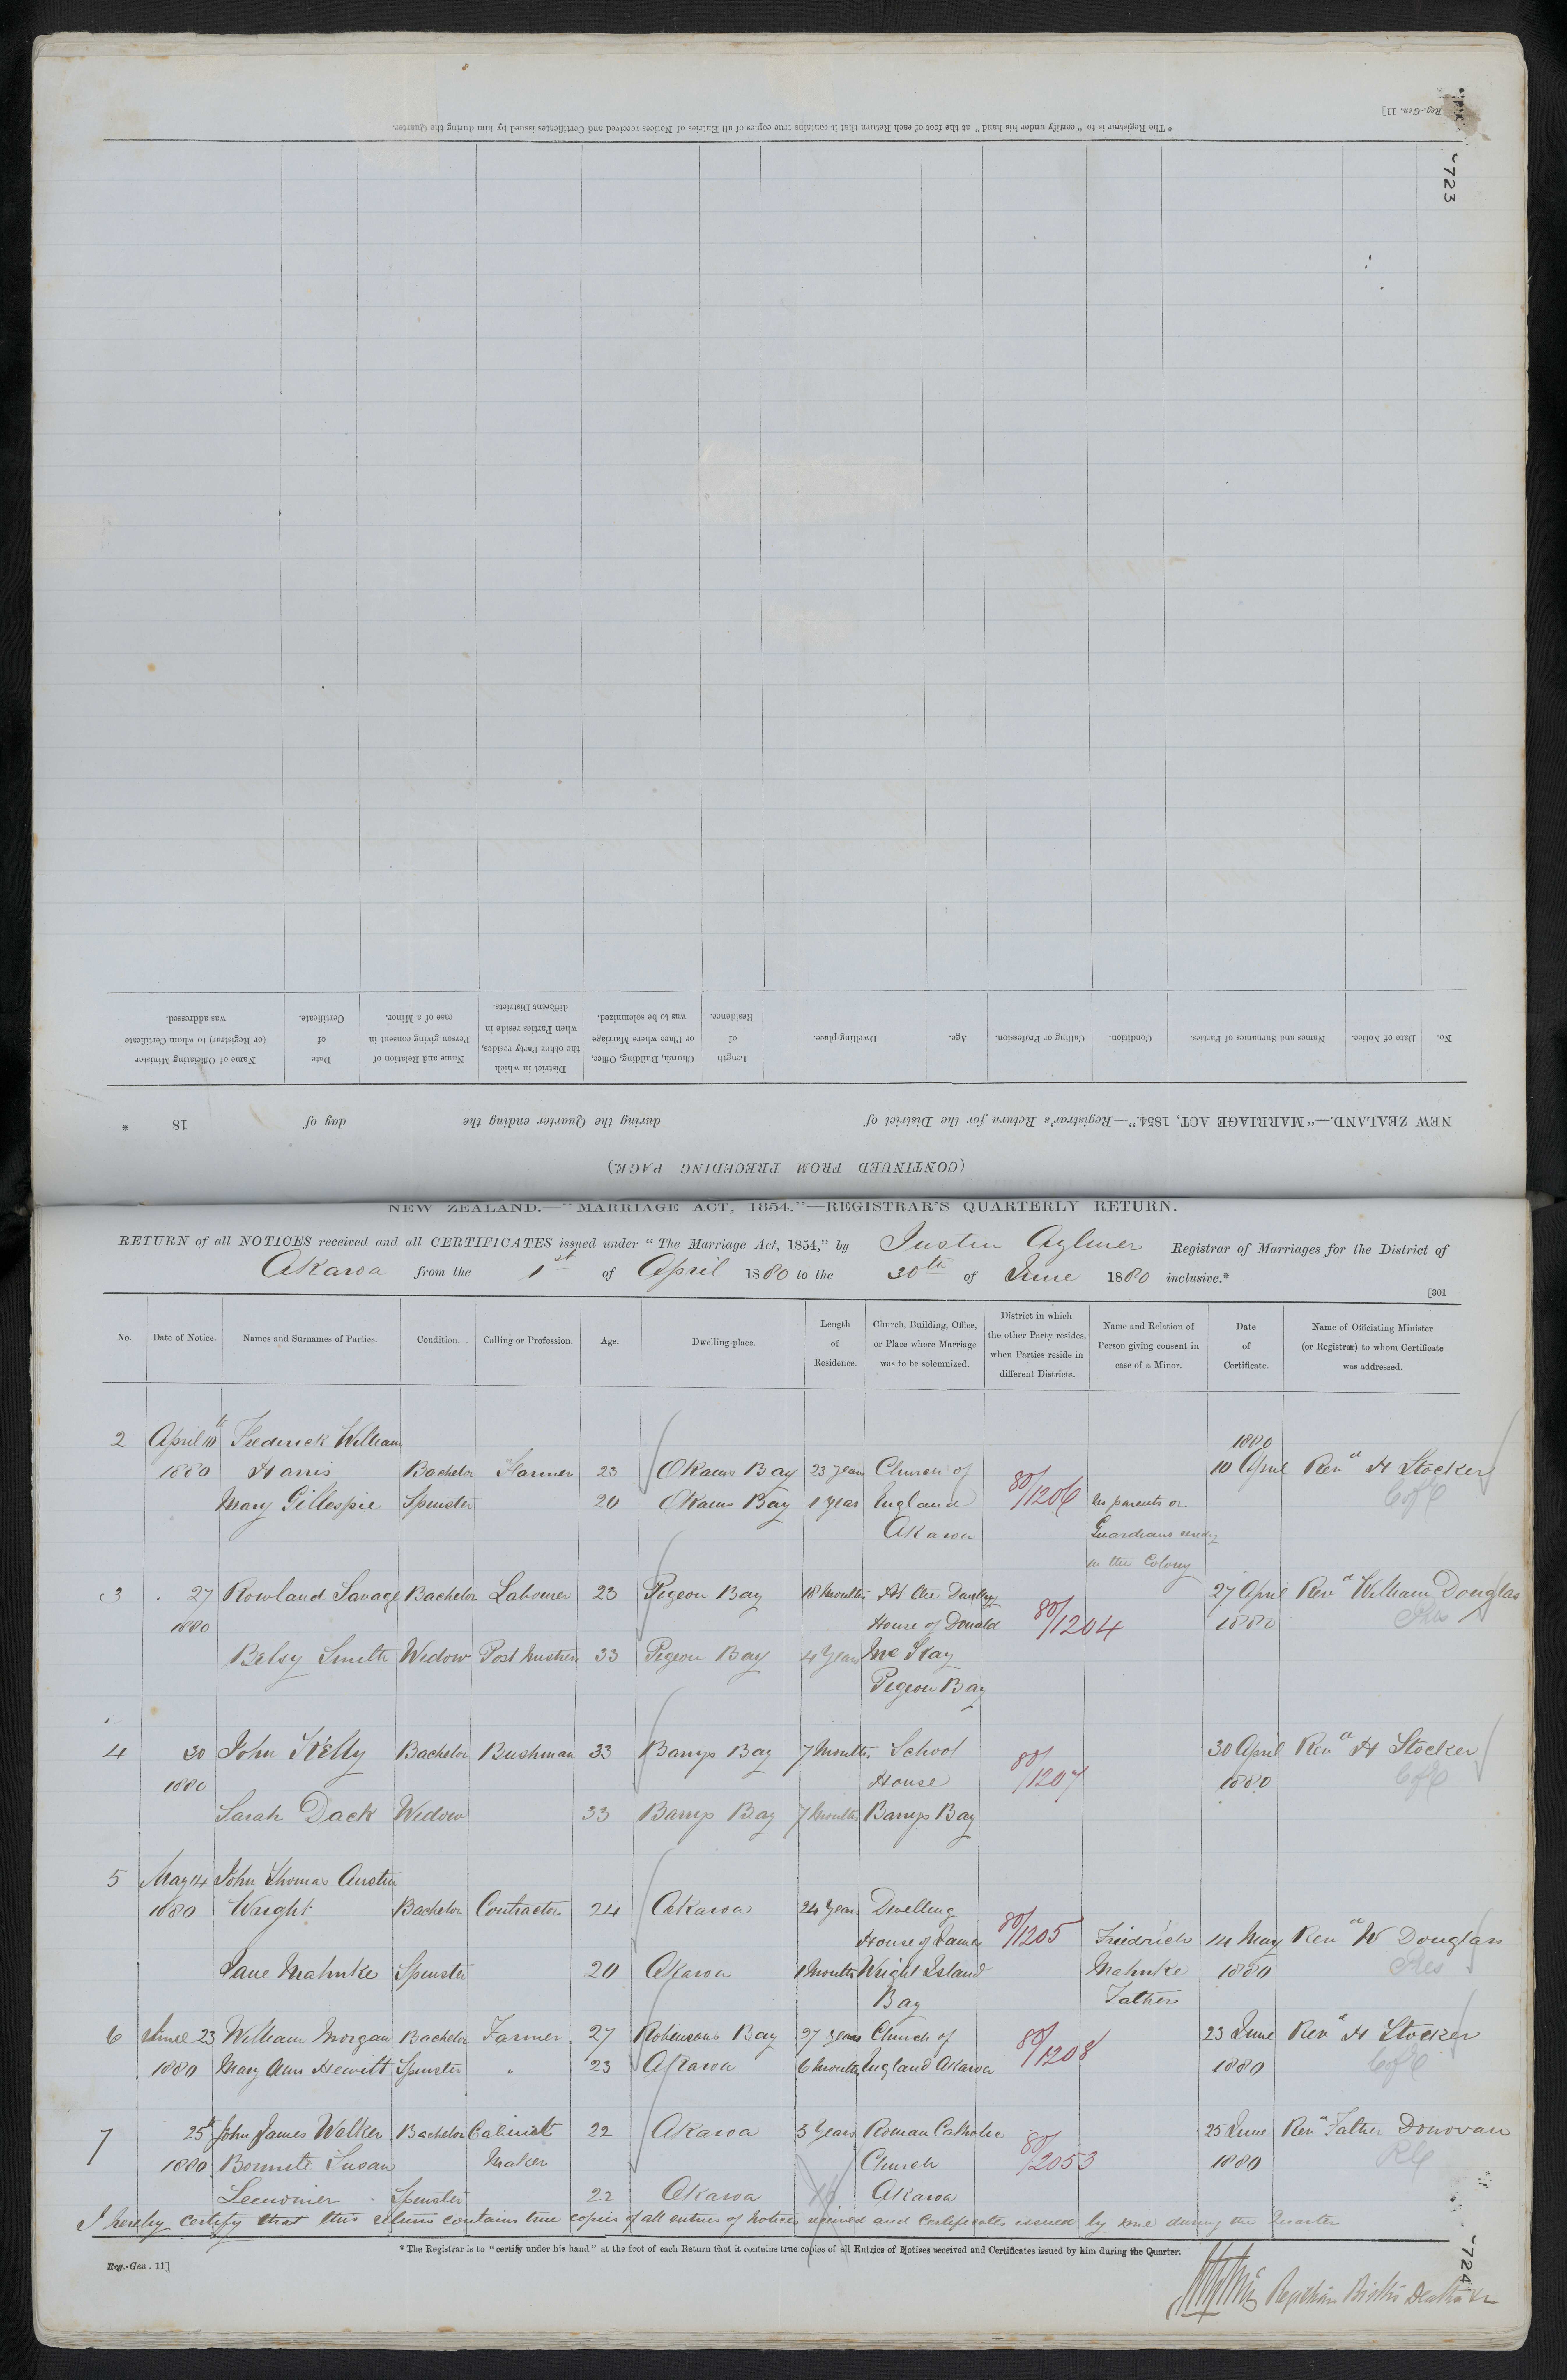 Reg.-Gen. 11]
* The Registrar is to "certify under his hand" at the foot of each Return that it contains true copies of all Entries of Notices received and Certificates issued by him during the Quarter.
723
(CONTINUED FROM PRECEDING PAGE.)
NEW ZEALAND.—"MARRIAGE ACT, 1854."—Registrar's Return for the District of during the Quarter ending the day of 18 *
No. Date of Notice. Names and Surnames of Parties. Condition. Calling or Profession. Age. Dwelling-place. Length of Residence. Church, Building, Office, or Place where Marriage was to be solemnized. District in which the other Party resides, when Parties reside in different Districts. Name and Relation of Person giving consent in case of a Minor. Date of Certificate. Name of Officiating Minister (or Registrar) to whom Certificate was addressed.
NEW ZEALAND.—"MARRIAGE ACT, 1854."—REGISTRAR'S QUARTERLY RETURN.
RETURN of all NOTICES received and all CERTIFICATES issued under "The Marriage Act, 1854," by Justin Aylmer Registrar of Marriages for the District of
Akaroa from the 1st of April 1880 to the 30th of June 1880 inclusive.*
[301
No. Date of Notice. Names and Surnames of Parties. Condition. Calling or Profession. Age. Dwelling-place. Length of Residence. Church, Building, Office, or Place where Marriage was to be solemnized. District in which the other Party resides, when Parties reside in different Districts. Name and Relation of Person giving consent in case of a Minor. Date of Certificate. Name of Officiating Minister (or Registrar) to whom Certificate was addressed.
2 April 10th Frederick William 1880
1880 Harris Bachelor Farmer 23 Okains Bay 23 years Church of 10 April Revd H Stocker
Mary Gillespie Spinster 20 Okains Bay 1 year England 80/1206 No parents or CofE
Akaroa Guardians
in the Colony
3 27 Rowland Savage Bachelor Labourer 23 Pigeon Bay 18 Months At the Dwelling 27 April Revd William Douglas
1880 House of Donald 80/1204 1880 Pres
Betsy Smith Widow Post Mistress 33 Pigeon Bay 4 Years
Pigeon Bay
4 30 John Kelly Bachelor Bushman 33 Barrys Bay 7 Months School 30 April Revd H Stocker
1880 House 80/1207 1880 CofE
Sarah Dack Widow 33 Barrys Bay 7 Months Barrys Bay
5 May 14 John Thomas Austin
1880 Wright Bachelor Contractor 24 Akaroa 24 Years Dwelling
House of James 80/1205 Friedrich 14 May Revd W Douglass
Jane Mahnke Spinster 20 Akaroa 1 Month Wright Island Mahnke 1880 Pres
Bay Father
6 June 23 William Morgan Bachelor Farmer 27 Robinsons Bay 27 years Church of 23 June Revd H Stocker
1880 Mary Ann Hewitt Spinster " 23 Akaroa 6 Months England Akaroa 80/1208 1880 CofE
7 25th John James Walker Bachelor Cabinet 22 Akaroa 3 Years Roman Catholic 25 June Revd Father Donovan
1880 Susan Maker Church 80/2053 1880 RC
Spinster 22 Akaroa Akaroa
I hereby certify that this return contains true copies of all entries of Notices received and Certificates issued by me during the Quarter
* The Registrar is to "certify under his hand" at the foot of each Return that it contains true copies of all Entries of Notices received and Certificates issued by him during the Quarter.
Reg.-Gen. 11]
724
Registrar Births Deaths &c